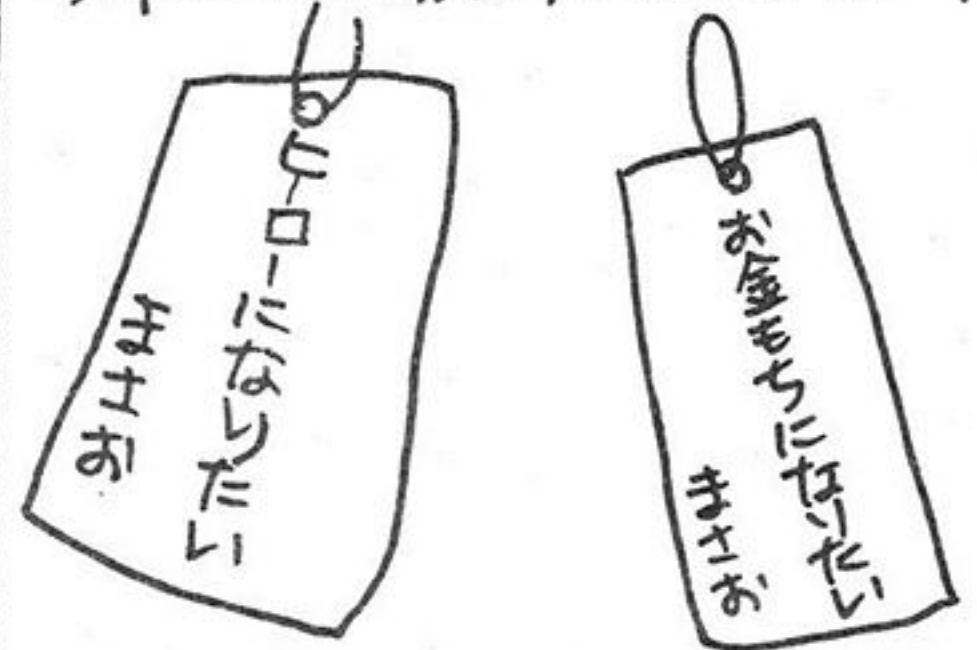 ヒーローになりたい
まさお
お金もちになりたい
まさお